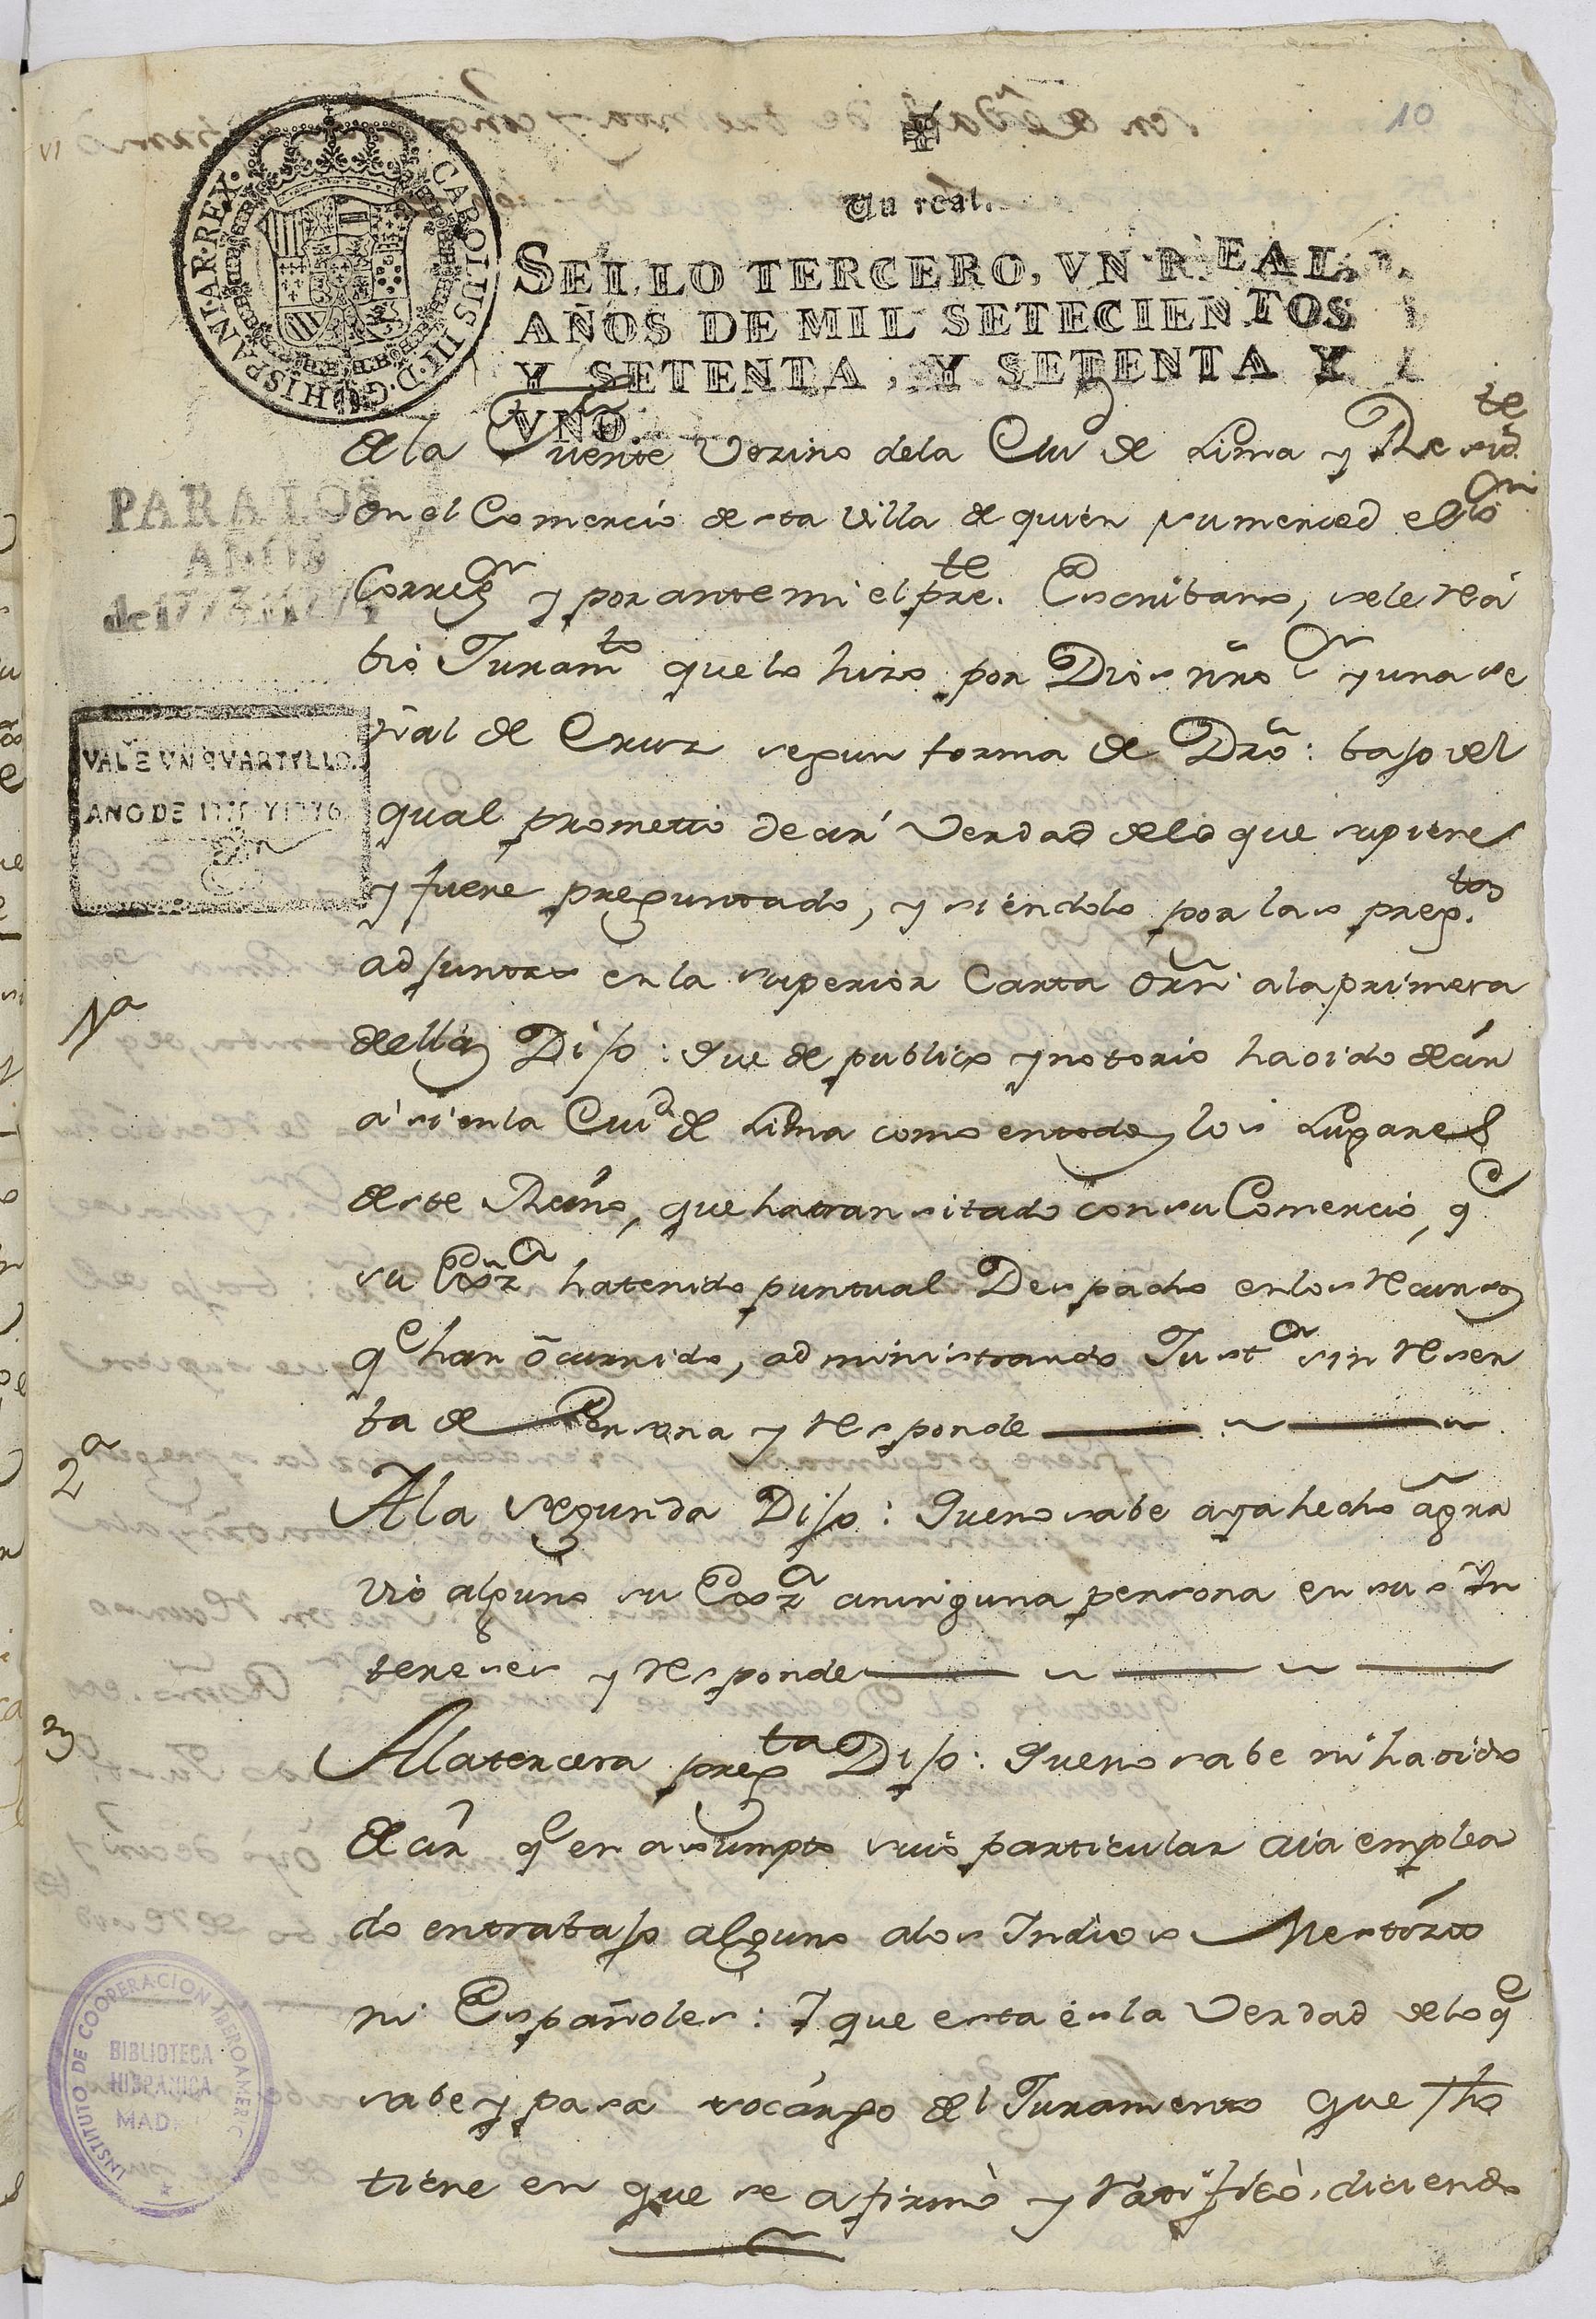 10
Un real.
SELLO TERCERO, VN REAL,
AÑOS DE MIL SETECIENTOS
Y SETENTA, Y SETENTA Y
VNO.
CAROLUS III. D. G. HISPANIAR. REX.
PARA LOS
AÑOS
de 1773. 1774
VALE VN QVARTILLO.
AÑO DE 1775 Y 1776
de la Fuente Vezino dela Ciud de Lima y Residte
en el Comercio de esta Villa de quien su merced el
Corregr y por ante mi el preste. Escribano, se le reci
bió Juramto que lo hizo por Dios nro Sr y una se
ñal de Cruz segun forma de Dro: bajo del
qual prometió decir Verdad de lo que supiere
y fuere preguntado, y siendolo por las pregtas
adjuntas en la superior Carta Orn a la primera
1a
de ellas Dijo: Que de publico y notorio ha oido decir
asi en la Ciud de Lima como en todos los Lugares
de este Reino, que ha transitado con su Comercio, qe
su Exza ha tenido puntual Despacho en los recursos
qe han ocurrido, administrando Justa sin reser
ba de Persona y responde
2a
A la segunda Dijo: Que no sabe aya hecho agra
vio alguno su Exza a ninguna persona en sus in
tereses y responde
3
A la tercera pregta Dijo: Que no sabe ni ha oido
decir qe en asumpto suio particular aia emplea
do en trabajo alguno a los Indios Mestizos
ni Españoles: Y que esta es la Verdad de lo qe
sabe y pasa so cargo del Juramento que fho
tiene en que se afirmò y ratificò, diciendo
INSTITUTO DE COOPERACION IBEROAMERIC
BIBLIOTECA
HISPANICA
MAD